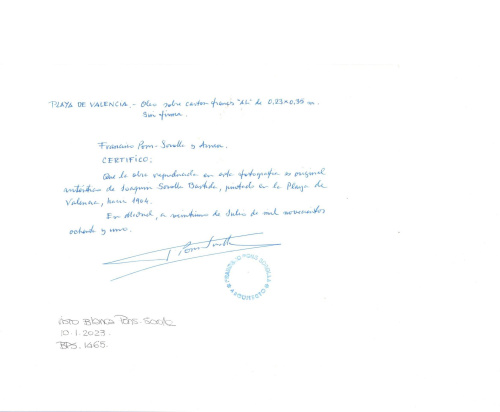 PLAYA DE VALENCIA.- Oleo sobre carton frances "M" de 0,23x0,35 m.
Sin firma.
Francisco Pons-Sorolla y Arnau.
CERTIFICO:
Que la obra reproducida en esta fotografia es original
autentico de Joaquin Sorolla Bastida, pintado en la Playa de
Valencia, hacia 1904.
En Madrid, a veintiuno de Julio de mil novecientos
ochenta y uno.
F Pons Sorolla
FRANCISCO PONS SOROLLA
ARQUITECTO
VISTO BLANCA PONS SOROLLA
10.1.2023.
BPS. 1465.